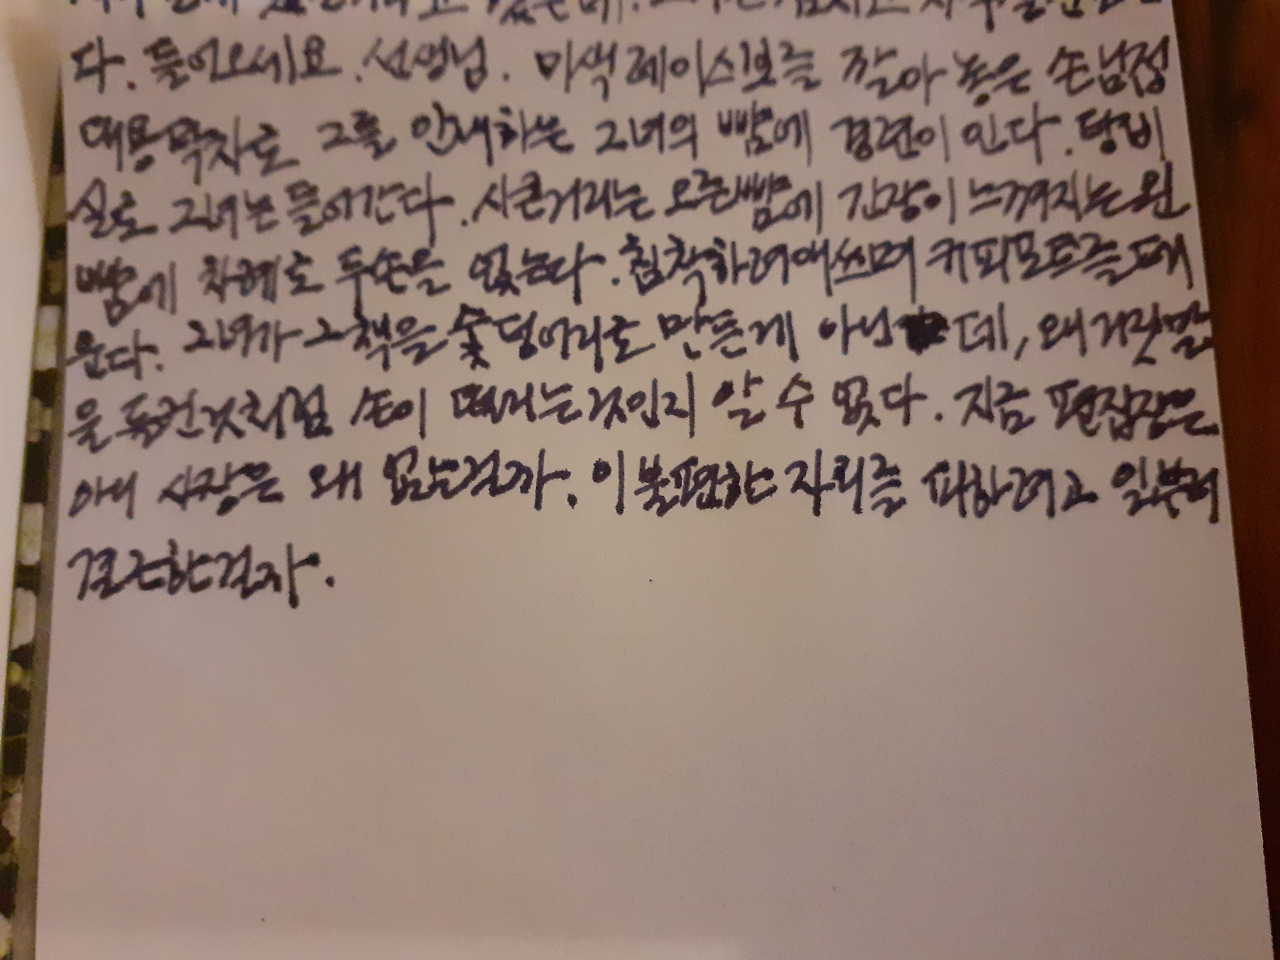 다. 들어오세요. 선생님. 미색 레이스보를 깔아 놓은 손님접
대용 탁자로 그를 안내하는 그녀의 뺨에 경련이 인다. 탕비
실로 그녀는 들어간다. 시큰거리는 오른뺨에 긴장이 느껴지는 왼
뺨에 차례로 두손을 얹는다. 침착하려 애쓰며 커피포트를 데
운다. 그녀가 그 책을 숯덩어리로 만든게 아닌데, 왜 거짓말
을 들킨것처럼 손이 떨리는 것인지 알 수 없다. 지금 편집장은
아니 사장은 왜 없는걸까. 이 불편한 자리를 피하려고 일부러
결근한걸까.